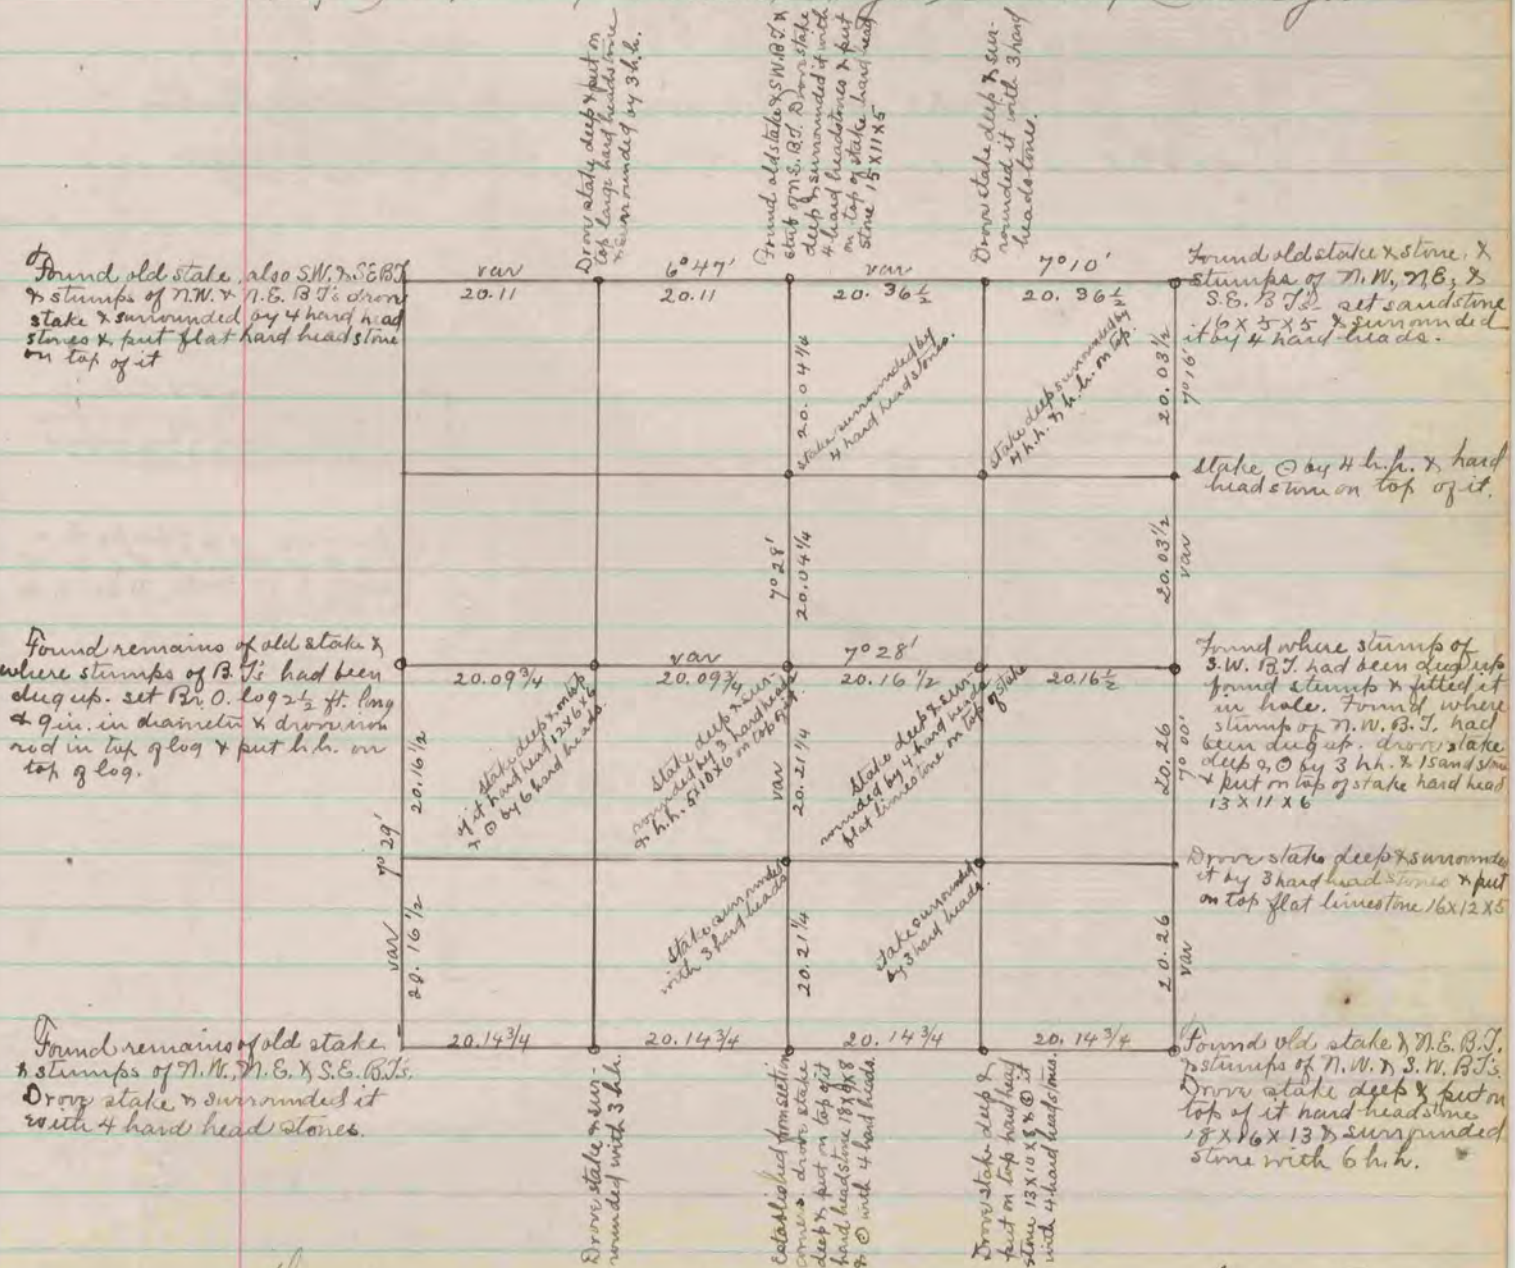 Drove stake deep & put on
top large hard headstone
& surrounded by 3 h.h.
Found old stake & S.W. B.T. &
stub of N.E. B.T. Drove stake
deep & surrounded it with
4 hard headstones & put
on top of stake hard head
stone 15 X 11 X 5
Drove stake deep & sur-
rounded it with 3 hard
headstones.
Found old stake, also S.W. & S.E B.T.
& stumps of N.W. & N.E. B T's drove
stake & surrounded by 4 hard head
stones & put flat hard head stone
on top of it
var 6° 47' var 7° 10'
20.11 20.11 20.36½ 20.36½
Found old stake & stone, &
stumps of N.W., N.E, &
S.E. B T's- set sandstone
16 X 5 X 5 & surrounded
it by 4 hard heads.
20.04¼
stake surrounded by
4 hard headstones.
stake deep surrounded by
4 h.h. & h.h. on top.
20.03½
7° 16'
stake ⊙ by 4 h.h. & hard
headstone on top of it.
7° 28'
20.04¼
20.03½
var
Found remains of old stake &
where stumps of B.T's had been
dug up. set Br. O. log 2½ ft. long
& 9 in. in diameter & drove iron
rod in top of log & put h.h. on
top of log.
var 7° 28'
20.09¾ 20.09¾ 20.16½ 20.16½
Found where stump of
S.W. B.T. had been dug up
found stump & fitted it
in hole. Found where
stump of N.W. B.T. had
been dug up. drove stake
deep & ⊙ by 3 hh. & 1 sandstone
& put on top of stake hard head
13 X 11 X 6
20.16½
stake deep & on top
of it hard head 12x6x6
& ⊙ by 6 hard heads.
stake deep & sur-
rounded by 3 hardheads
& h.h. 5x10x6 on top of it.
var
20.21¼
stake deep & sur-
rounded by 4 hard heads
flat limestone on top of stake
20.26
7° 00'
7° 29'
Drove stake deep & surrounded
it by 3 hard head stones & put
on top flat limestone 16X12X5
var
20.16½
stake surrounded
with 3 hard heads
20.21¼
stake surrounded
by 3 hard heads.
20.26
var
Found remains of old stake
& stumps of N.W., N.E. & S.E. B.T's.
Drove stake & surrounded it
with 4 hard head stones.
20.14¾ 20.14¾ 20.14¾ 20.14¾
Found old stake & N.E. B.T.
& stumps of N.W. & S.W. B.T's.
Drove stake deep & put on
top of it hard headstone
18 X 16 X 13 & surrounded
stone with 6 h.h.
Drove stake & sur-
rounded with 3 h.h.
Established from section
corners. drove stake
deep & put on top of it
hard headstone 18X9X8
& ⊙ with 4 hard heads.
Drove stake deep &
put on top hard head
stone 13X10X8 & ⊙ it
with 4 hard headstones.